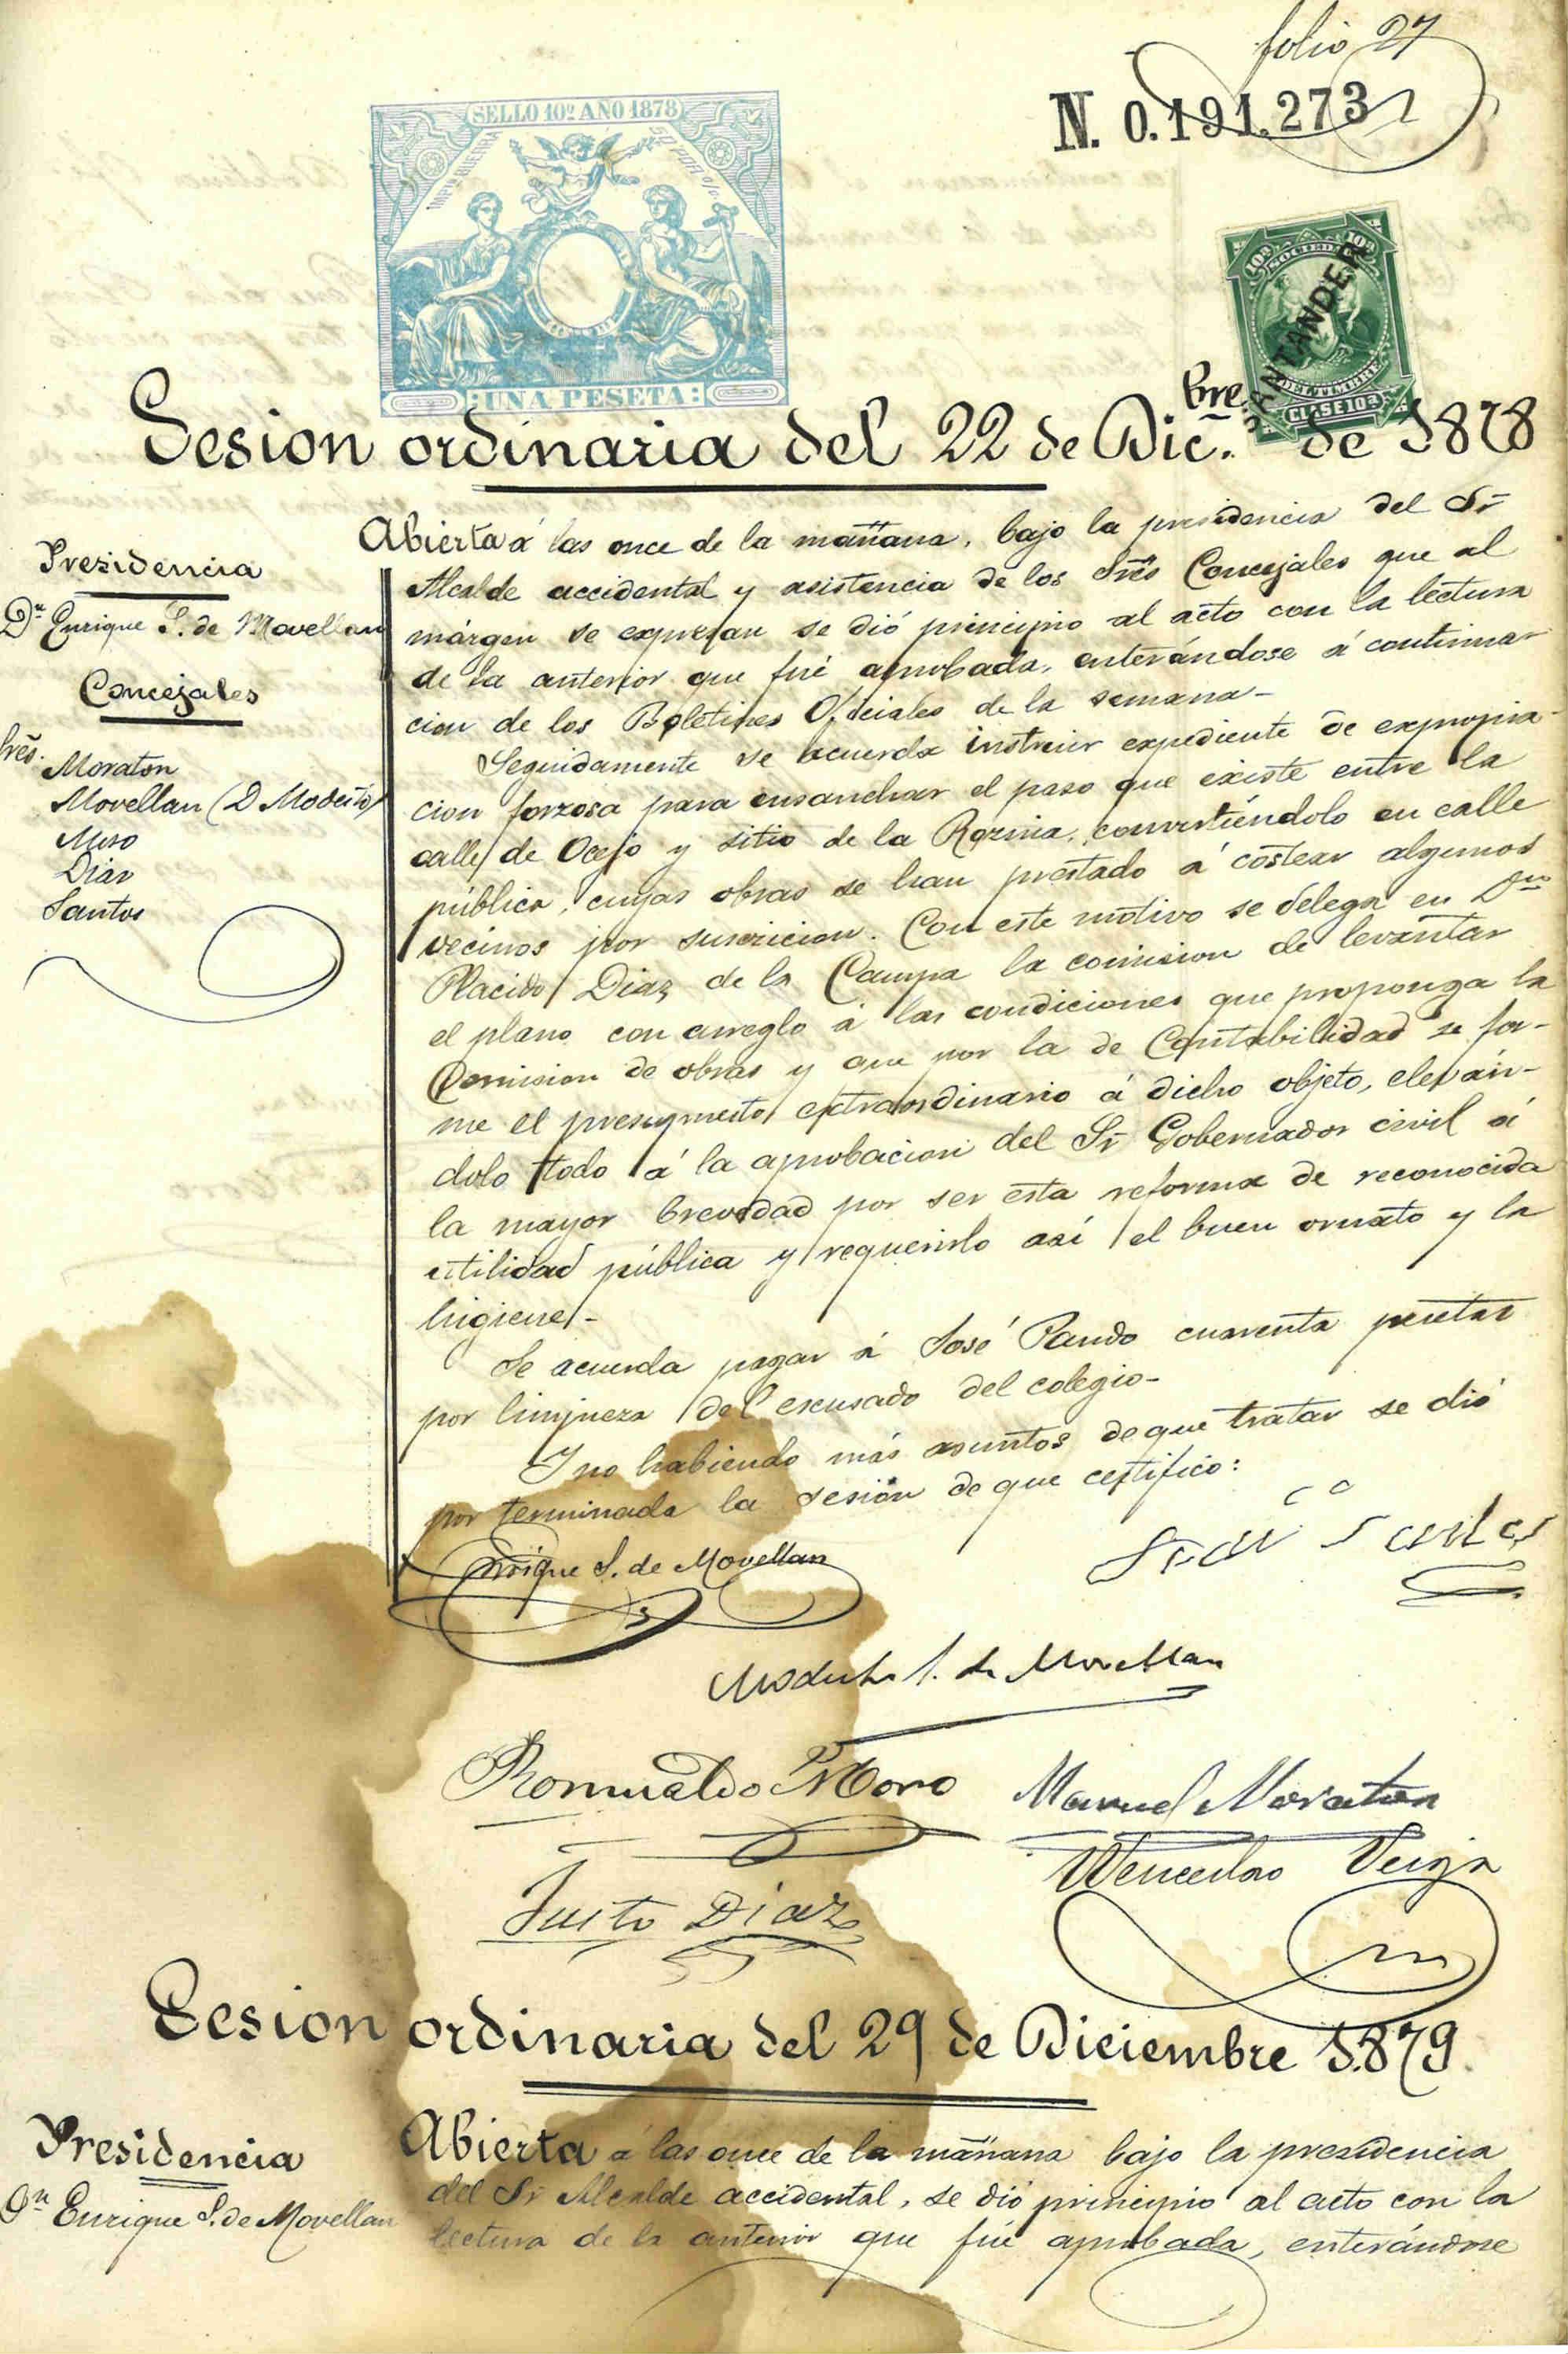 folio 27
N. 0.191.273
SELLO 10º AÑO 1878
UNA PESETA
SOCIED
SANTANDER
CLASE 10ª
Sesion ordinaria del 22 de Dic.bre de 1878
Presidencia
Dn Enrique S. de Movellan
Concejales
Sres.
Moraton
Movellan (D Modesto)
Moro
Diaz
Santos
Abierta á las once de la mañana, bajo la presidencia del Sr
Alcalde accidental y asistencia de los Sres Concejales que al
márgen se expresan se dió principio al acto con la lectura
de la anterior que fué aprobada, enterándose á continua-
cion de los Boletines Oficiales de la semana-
Seguidamente se acuerda instruir expediente de expropia-
cion forzosa para ensanchar el paso que existe entre la
calle de Ocejo y sitio de la convirtiéndolo en calle
pública, cuyas obras se han prestado á costear algunos
vecinos por suscricion. Con este motivo se delega en Dn
Placido Diaz de la Campa la comision de levantar
el plano con arreglo á las condiciones que proponga la
Comision de obras y que por la de Contabilidad se for-
me el presupuesto extraordinario á dicho objeto, eleván-
dolo todo á la aprobacion del Sr Gobernador civil á
la mayor brevedad por ser esta reforma de reconocida
utilidad pública y requerirlo así el buen ornato y la
higiene-
Se acuerda pagar á José Pando cuarenta pesetas
por limpieza del escusado del colegio-
Y no habiendo más asuntos de que tratar se dió
por terminada la sesión de que certifico:
Enrique S. de Movellan
Santos
Modesto S. de Movellan
Romualdo Moro
Manuel Moraton
Justo Diaz
Wenceslao Veija
Sesion ordinaria del 29 de Diciembre 1.879.
Presidencia
Dn Enrique S. de Movellan
Abierta á las once de la mañana bajo la presidencia
del Sr Alcalde accidental, se dió principio al acto con la
lectura de la anterior que fué aprobada, enterándose